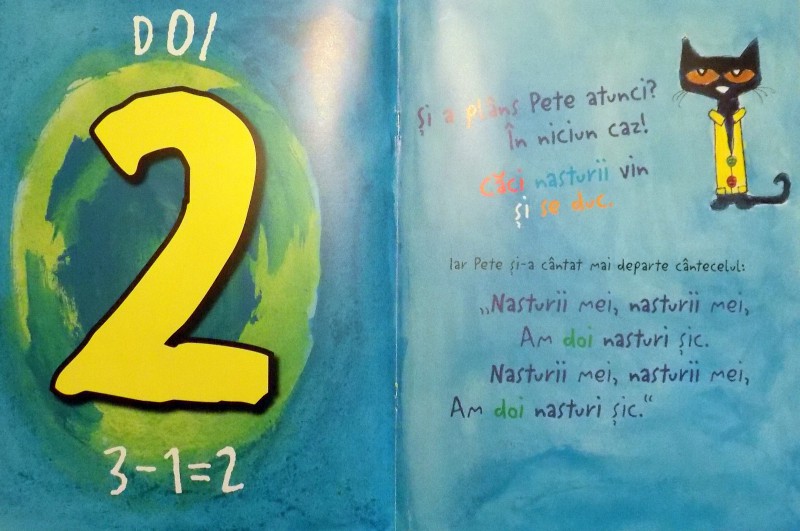 DOI
2
3-1=2
Și a plâns Pete atunci?
În niciun caz!
Căci nasturii vin
și se duc.
Iar Pete și-a cântat mai departe cântecelul:
„Nasturii mei, nasturii mei,
Am doi nasturi șic.
Nasturii mei, nasturii mei,
Am doi nasturi șic.“